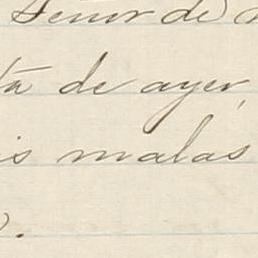 Señor de
ta de ayer,
is malas